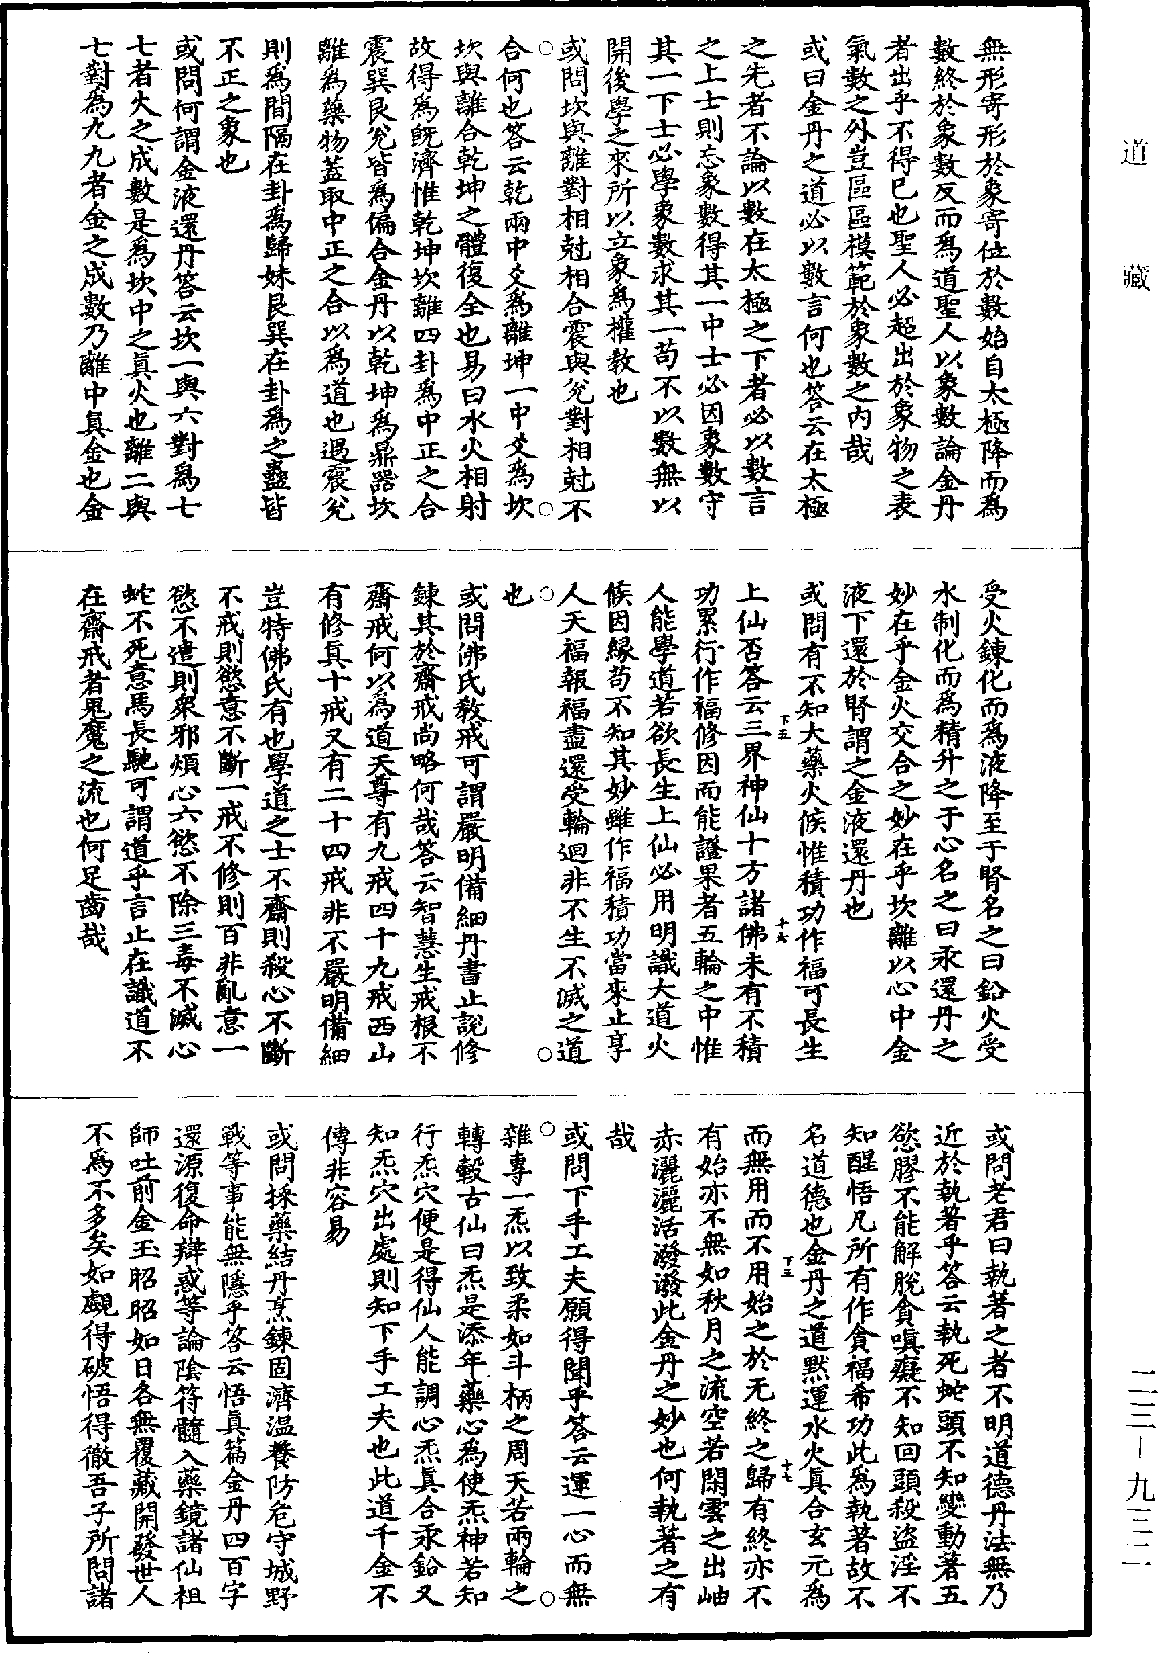 道藏
無形寄形於象寄位於數始自太極降而爲
數終於象數反而爲道聖人以象數論金丹
者出乎不得已也聖人必超出於象物之表
氣數之外豈區區模範於象數之內哉
或曰金丹之道必以數言何也答云在太極
之先者不論以數在太極之下者必以數言
之上士則忘象數得其一中士必因象數守
其一下士必學象數求其一苟不以數無以
開後學之來所以立象爲權教也
或問坎與離對相尅相合震與兌對相尅不
合何也答云乾兩中爻爲離坤一中爻爲坎
坎與離合乾坤之體復全也易曰水火相射
故得爲既濟惟乾坤坎離四卦爲中正之合
震巽艮兌皆爲偏合金丹以乾坤爲鼎器坎
離爲藥物蓋取中正之合以爲道也遇震兌
則爲間隔在卦爲歸妹艮巽在卦爲之蠱皆
不正之象也
或問何謂金液還丹答云坎一與六對爲七
七者火之成數是爲坎中之真火也離二與
七對爲九九者金之成數乃離中真金也金
受火鍊化而爲液降至于腎名之曰鉛火受
水制化而爲精升之于心名之曰汞還丹之
妙在乎金火交合之妙在乎坎離以心中金
液下還於腎謂之金液還丹也
或問有不知大藥火候惟積功作福可長生
上仙否答云三界神仙十方諸佛未有不積
功累行作福修因而能證果者五輪之中惟
人能學道若欲長生上仙必用明識大道火
候因緣苟不知其妙雖作福積功當來止享
人天福報福盡還受輪迴非不生不滅之道
也
或問佛氏教戒可謂嚴明備細丹書止說修
鍊其於齋戒尚略何哉答云智慧生戒根不
齋戒何以為道天尊有九戒四十九戒西山
有修真十戒又有二十四戒非不嚴明備細
豈特佛氏有也學道之士不齋則殺心不斷
不戒則慾意不斷一戒不修則百非亂意一
慾不遣則衆邪煩心六慾不除三毒不滅心
蛇不死意馬長馳可謂道乎言止在識道不
在齋戒者鬼魔之流也何足齒哉
或問老君曰執著之者不明道德丹法無乃
近於執著乎答云執死蛇頭不知變動著五
慾膠不能解脫貪嗔癡不知回頭殺盜淫不
知醒悟凡所有作貪福希功此為執著故不
名道德也金丹之道默運水火真合玄元為
而無用而不用始之於无終之歸有終亦不
有始亦不無如秋月之流空若閑雲之出岫
赤灑灑活潑潑此金丹之妙也何執著之有
哉
或問下手工夫願得聞乎答云運一心而無
雜專一炁以致柔如斗柄之周天若兩輪之
轉轂古仙曰炁是添年藥心為使炁神若知
行炁穴便是得仙人能調心炁真合汞鉛又
知炁穴出處則知下手工夫也此道千金不
傳非容易
或問採藥結丹烹鍊固濟溫養防危守城野
戰等事能無隱乎答云悟真篇金丹四百字
還源復命辯惑等論陰符髓入藥鏡諸仙祖
師吐前金玉昭昭如日各無覆藏開發世人
不爲不多矣如覷得破悟得徹吾子所問諸
下五
十六
下三
十七
二三－九三二